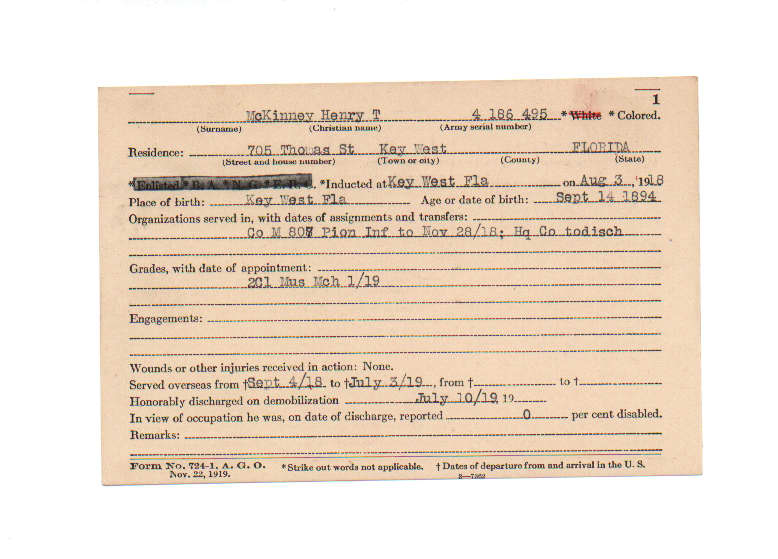 1
McKinney Henry T 4 186 495 * White * Colored.
(Surname) (Christian name) (Army serial number)
Residence: 705 Thomas St Key West FLORIDA
(Street and house number) (Town or city) (County) (State)
* Enlisted * R. A. * N. G. * E. R. C. * Inducted at Key West Fla on Aug 3, 1918
Place of birth: Key West Fla Age or date of birth: Sept 14 1894
Organizations served in, with dates of assignments and transfers:
Co M 807 Pion Inf to Nov 28/18; Hq Co todisch
Grades, with date of appointment:
2Cl Mus Mch 1/19
Engagements:
Wounds or other injuries received in action: None.
Served overseas from †Sept 4/18 to †July 3/19, from † to †
Honorably discharged on demobilization July 10/19 19
In view of occupation he was, on date of discharge, reported 0 per cent disabled.
Remarks:
Form No. 724-1, A. G. O. * Strike out words not applicable. † Dates of departure from and arrival in the U. S.
Nov. 22, 1919.